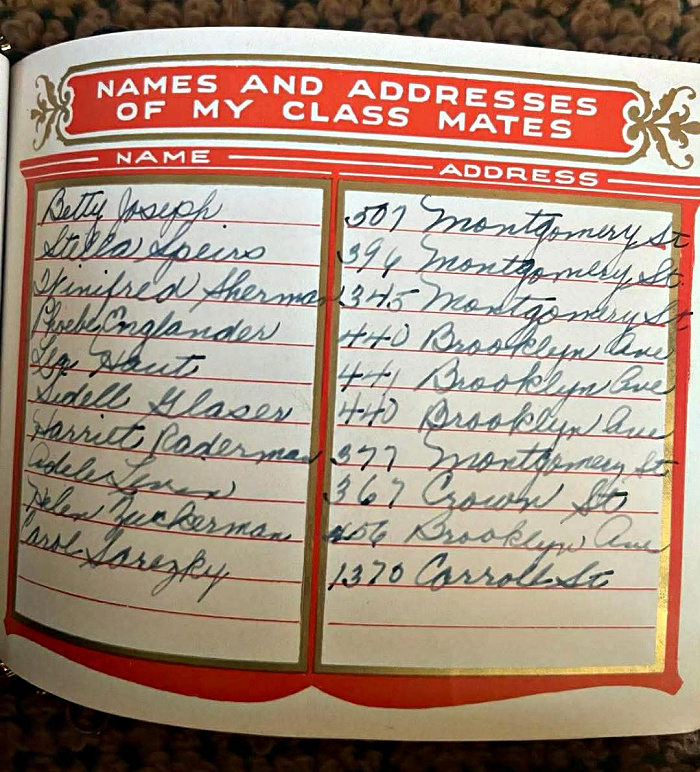 NAMES AND ADDRESSES
OF MY CLASS MATES
NAME ADDRESS
Betty Joseph 507 Montgomery St
Stella Speirs 396 Montgomery St.
Winifred Sherman 345 Montgomery St.
Phoebe Englander 440 Brooklyn Ave
Haut 441 Brooklyn Ave
Sidell Glaser 440 Brooklyn Ave
Harriet Raderman 377 Montgomery St
Adele Levin 367 Crown St
Helen Zuckerman 456 Brooklyn Ave
Carol Sarezky 1370 Carroll St